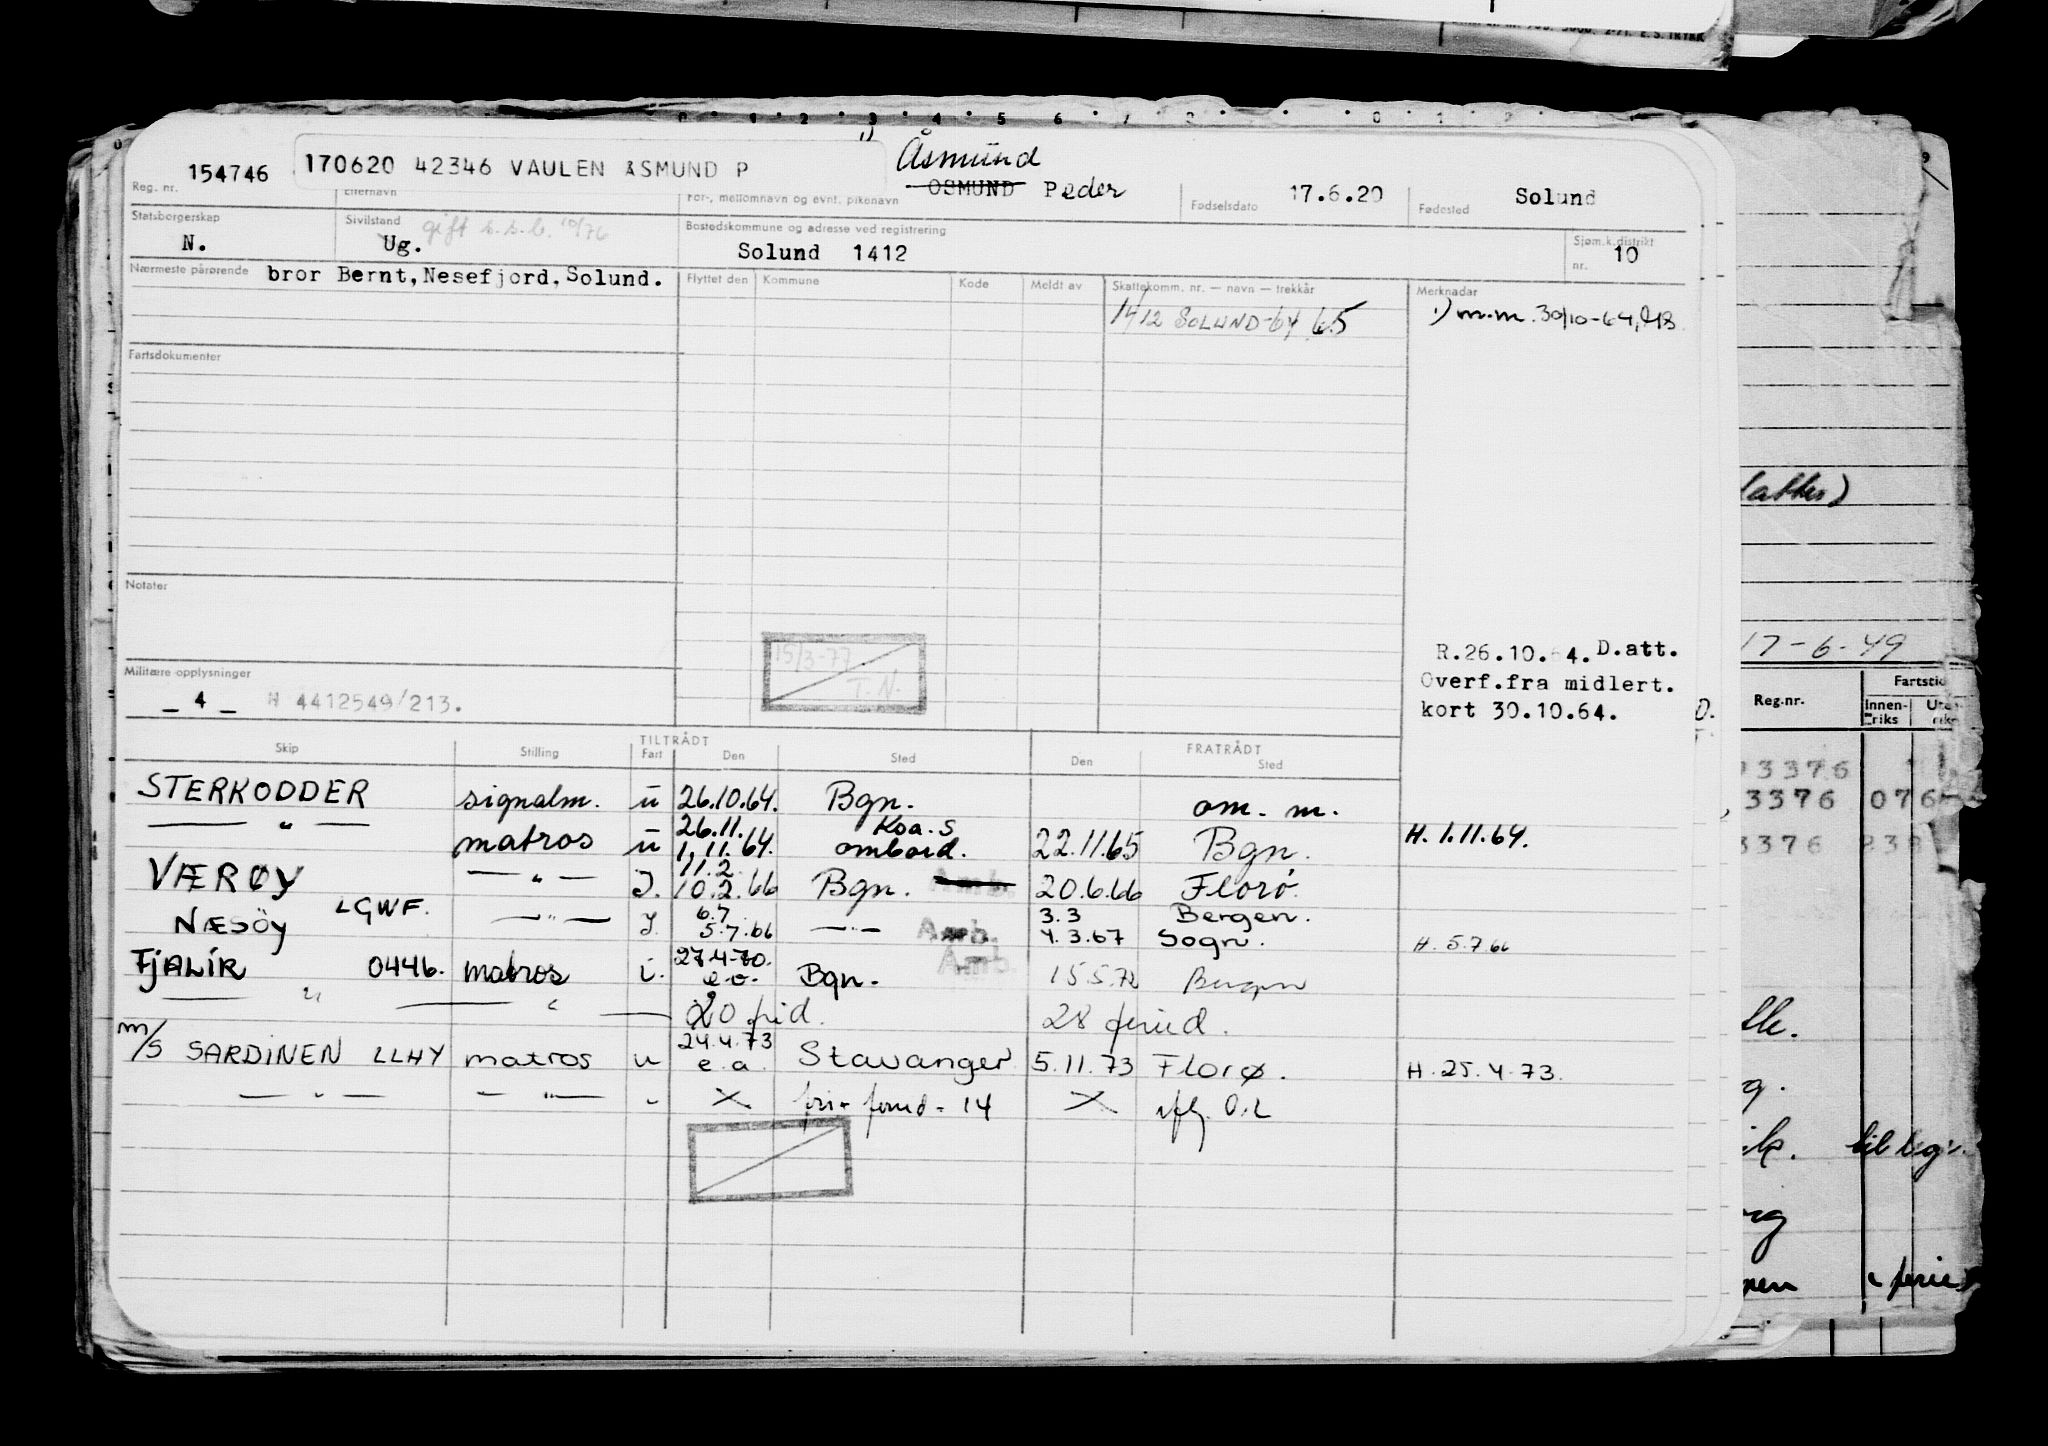 154746 170620 42346 VAULEN ÅSMUND P 1) Åsmund OSMUND Peder 17.6.20 Solund
Reg. nr. Etternavn For-, mellomnavn og evnt. pikenavn Fødselsdato Fødested
Statsborgerskap Sivilstand gift s.s.b. 10/76 Bostedskommune og adresse ved registrering Sjøm.k.distrikt
N. Ug. Solund 1412 nr. 10
Nærmeste pårørende bror Bernt, Nesefjord, Solund. Flyttet den Kommune Kode Meldt av Skattekomm. nr. — navn — trekkår Merknader
1412 SOLUND-64 65 1) m.m. 30/10-64,
Fartsdokumenter
Notater
15/3-77
T.N.
R.26.10.64. D.att.
Overf.fra midlert.
kort 30.10.64.
Militære opplysninger
_ 4 _ H 4412549/213.
Skip Stilling TILTRÅDT Fart Den Sted FRATRÅDT Den Sted
STERKODDER signalm. u 26.10.64. Bgn. om. m.
— " — matros u 26.11. 1.11.64. Koa.S ombord. 22.11.65 Bgn. H. 1.11.64.
VÆRØY — " — J. 11.2 10.2.66 Bgn. Amb. 20.6.66 Florø
NÆSÖY LGWF. — " — J. 6.7 5.7.66 — " — Amb. 3.3 4.3.67 Bergen. Sogn. H. 5.7.66
FJALIR 0446. matros i. 27.4-70. e.o. Bgn. Amb. 15.5.72 Bergen
— " — — " — 20 frid. 28 feried.
m/s SARDINEN LLHY matros u 24.4.73 e.a. Stavanger 5.11.73 Florø. H. 25.4.73.
— " — — " — " X fri + feried = 14 X
latter)
17-6-49
Reg.nr. Fartstid
Innen-riks
3376
3376 076
3376
til
ferie